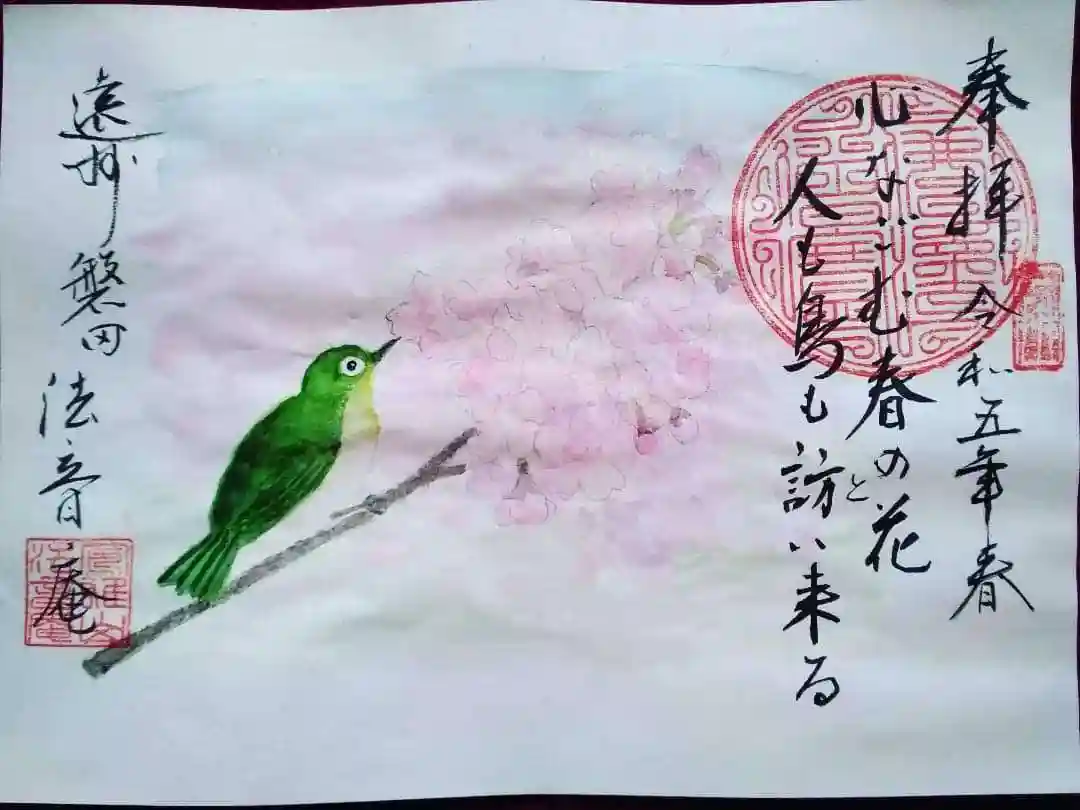 奉拝 令和五年春
心なごむ春の花と
人も鳥も訪い来る
遠州 磐田 法音庵